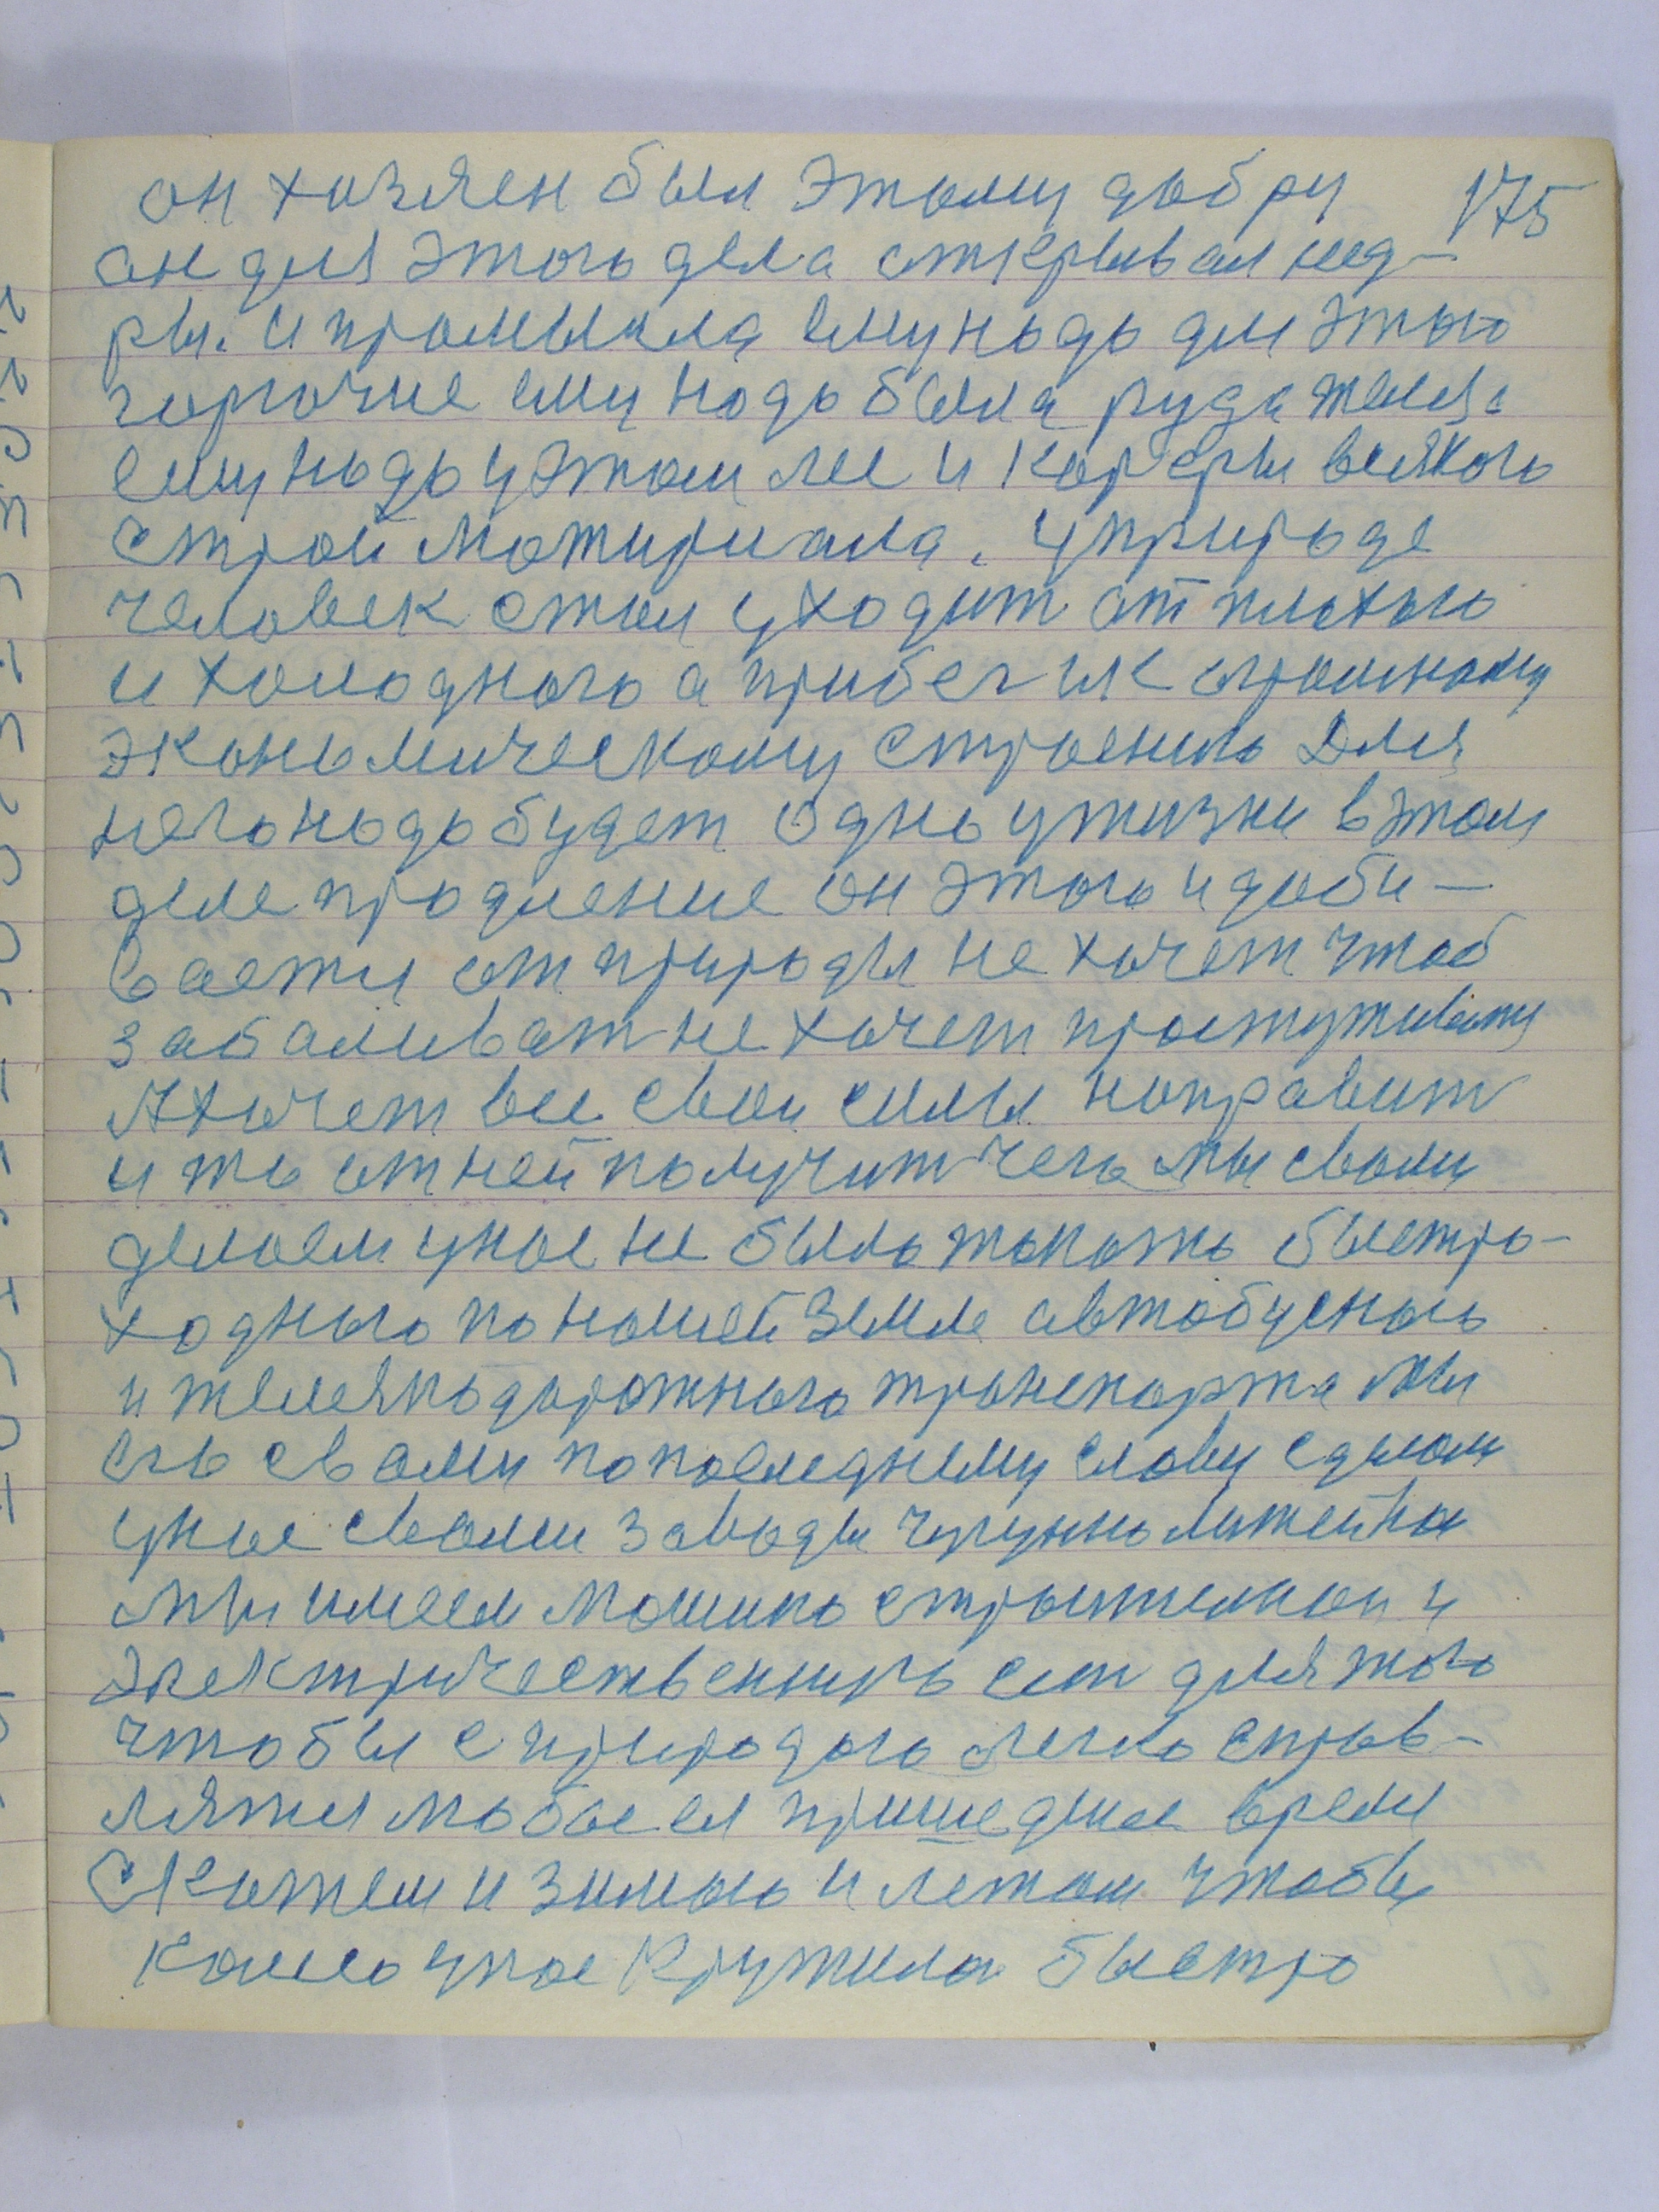 175
он хозяен был этому добру
он для этого дела открывал нед-
ры. и промысла ему надо для этого
горючие ему надо была руда железа
ему надо у этом лес и карьеры всякого
строй мотириала. у природе
человек стал уходит от плохого
и холодного а прибегик огромному
экономическому строению Для
него надо будет одно у жизни в этом
деле продление он этого и доби-
вается от природы не хочет чтоб
заболиват не хочет простуживатся
А хочет все свои силы направит
и то от ней получит чего мы с вами
делаем у нас не было такого быстро-
ходного по нашей земле автобусного
и железнодорожного транспорта Мы
его с вами по последнему слову сделали
у нас с вами заводы чугунно литейна
мы имеем машино строителной и
электричественного сет для того
чтобы с природою легко справ-
лятся мобыея пришедшее время
Скажем и зимою и летом чтобы
колесо у нас кружило быстро